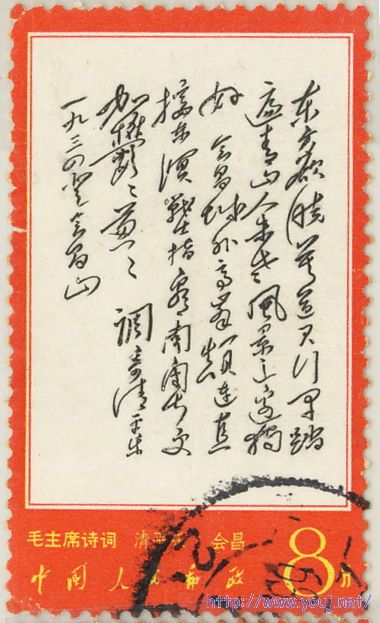 东方欲晓莫道君行早踏
遍青山人未老风景这边独
好 会昌城外高峰颠连直
接东溟戰士指看南粤更
加鬱〻葱〻 調寄清平乐
一九三四登会昌山
毛主席诗词 清平乐 会昌
中国人民邮政 8分
http://www.youj.net/